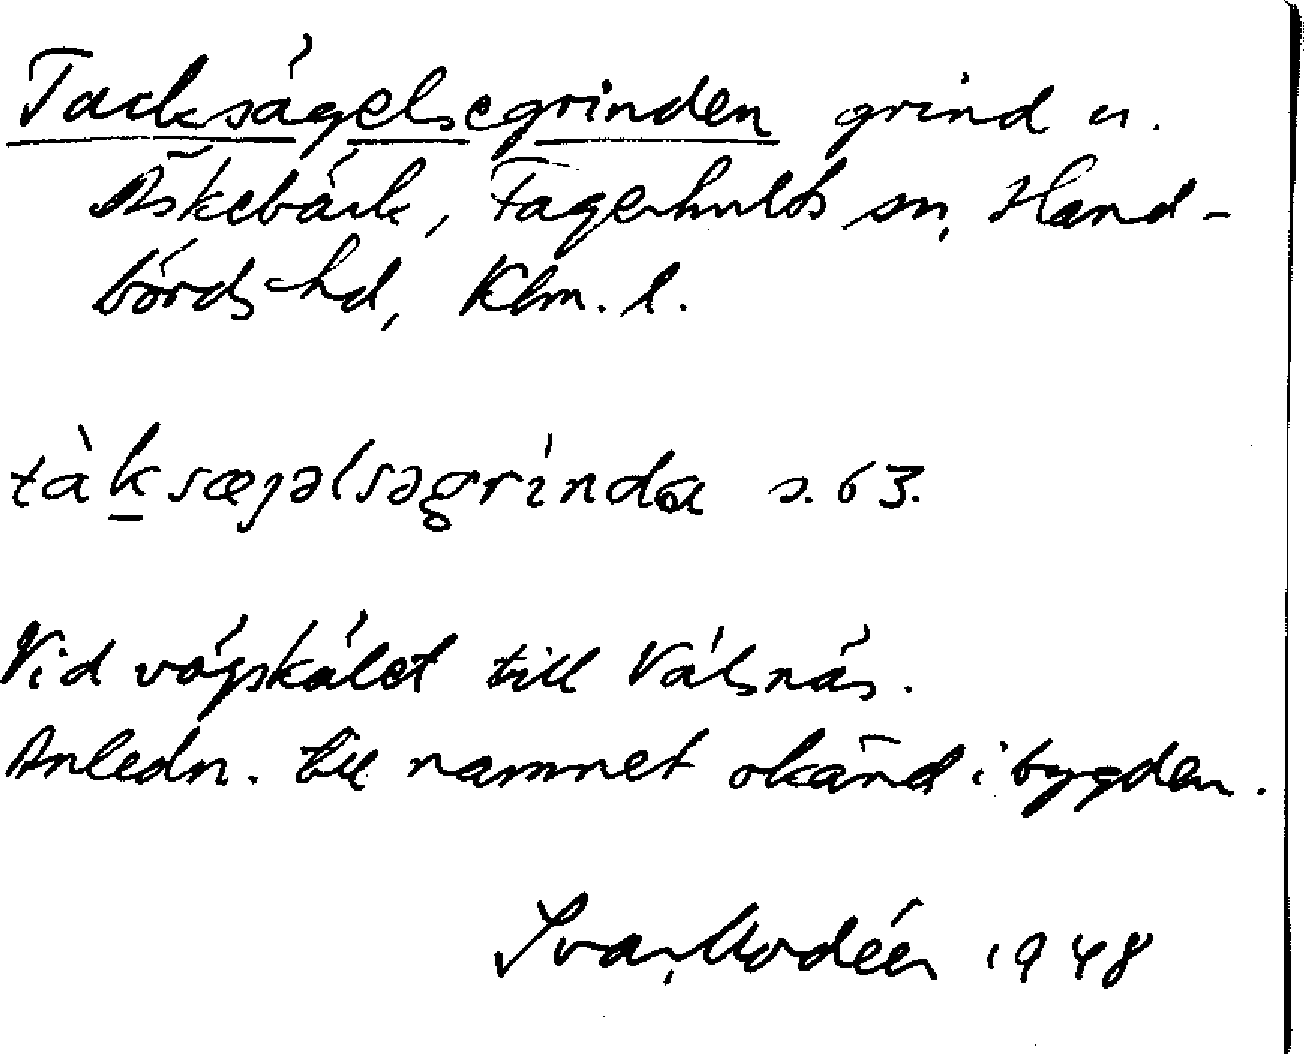 Tacksägelsegrinden grind u.
Äskebäck, Fagerhults sn, Hand-
börds hd, Klm. l.
tàksæȷəlsəgrínda s. 63.
Vid vägskälet till Välsnäs.
Anledn. till namnet okänd i bygden.
Ivar Modéer 1948